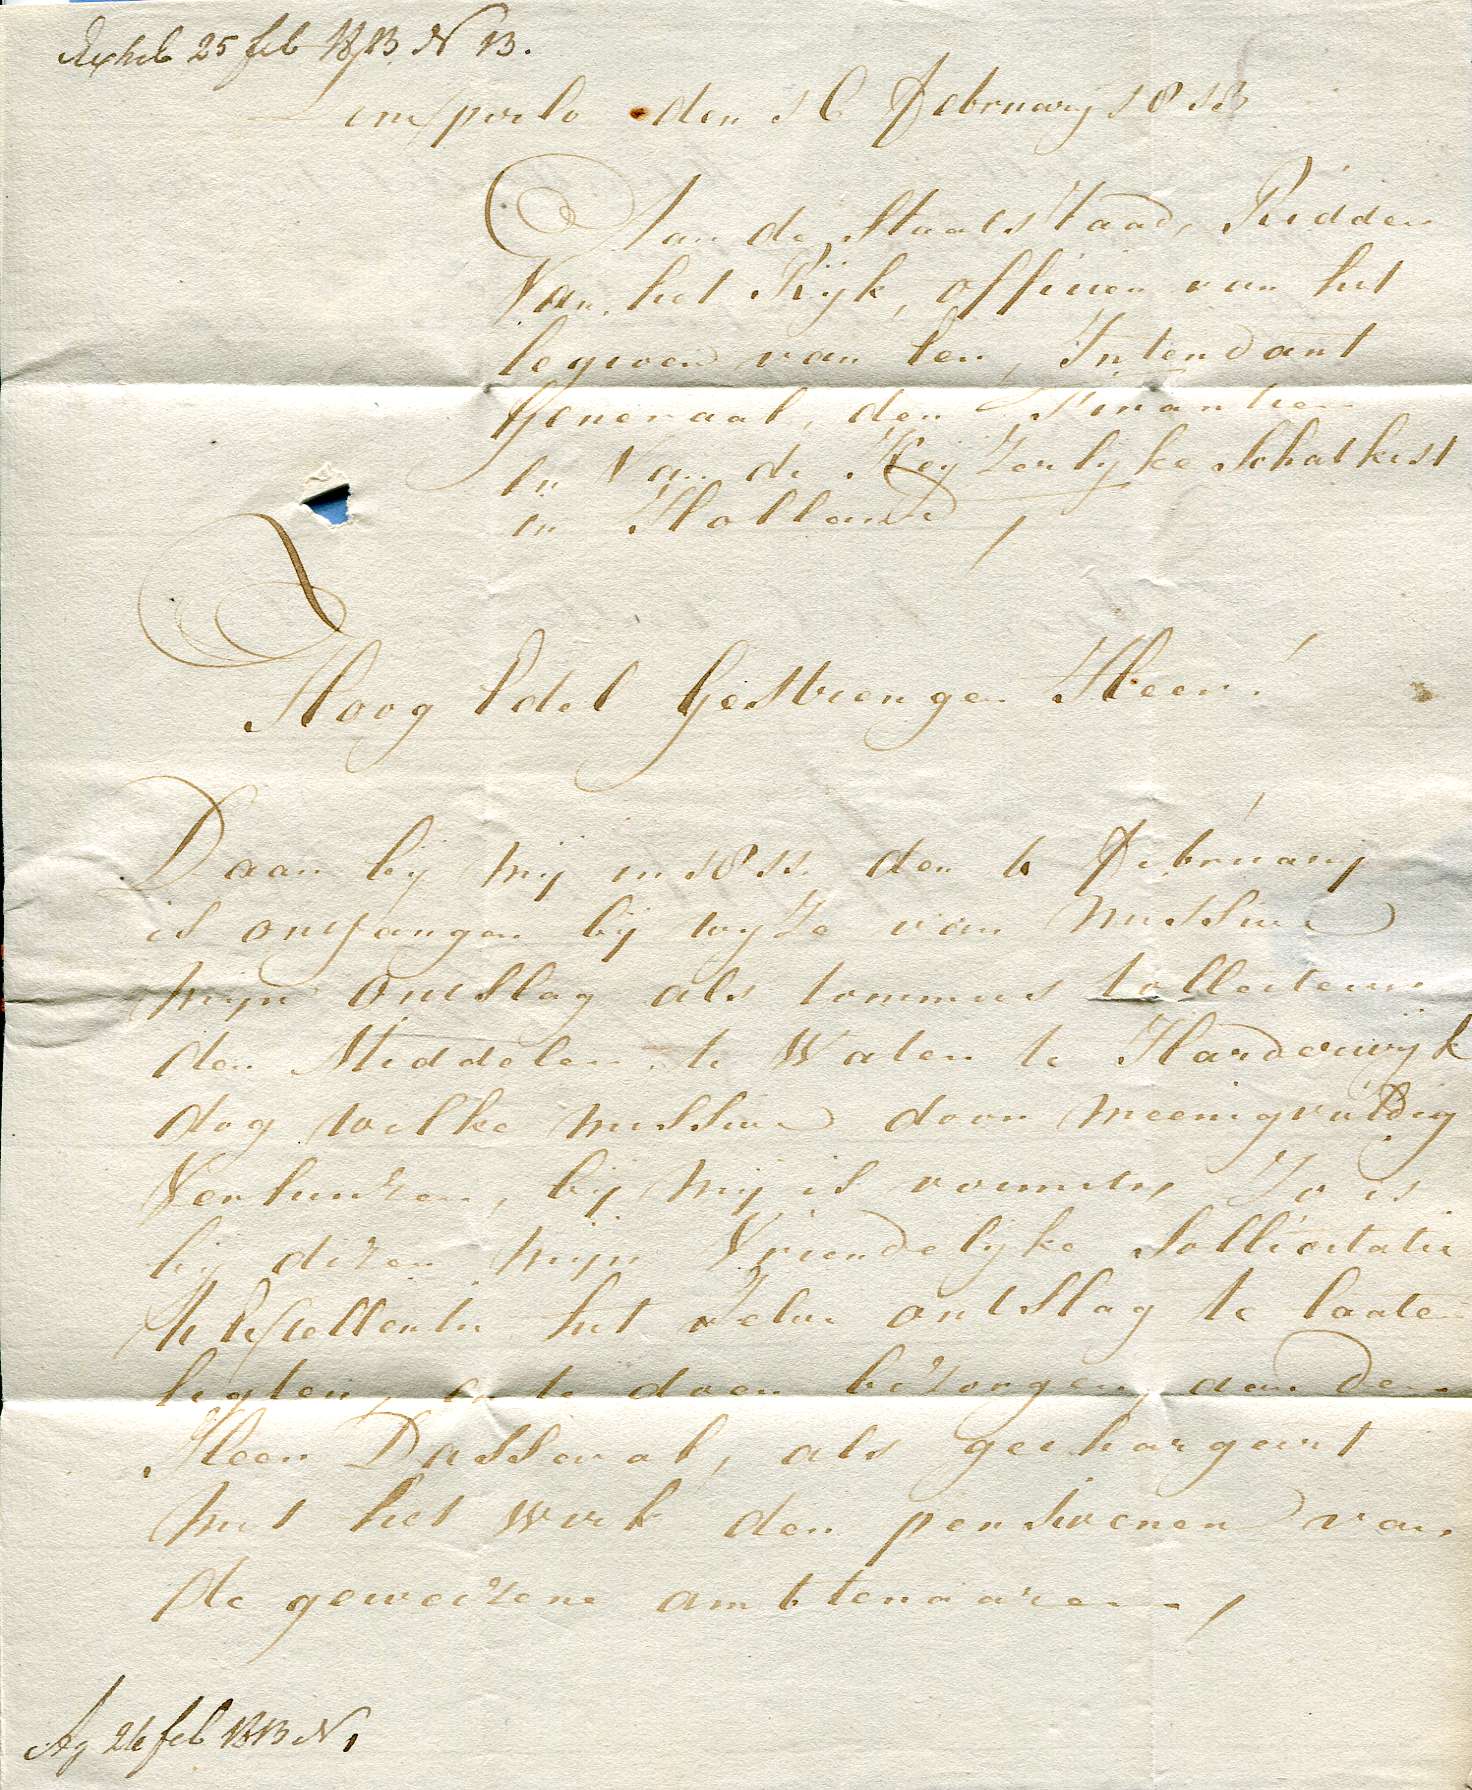 Exhib 25 feb 1813 N 13.
den 16 February 1813
Aan de Staats Raad, Ridder
Van het Rijk, officier van het
legioen van Eer, Intendant
Generaal, der Finantien
en Van de Keyzerlyke Schatkist
in Holland,
Hoog Edel Gestrenge Heer!
Daar bij mij in 1811 den 6 February
is ontfangen bij wyze van missive
mijn ontslag als Commies Collecteur
der Middelen te Water te Harderwijk
dog welke missive door meenigvuldig
Verhuizen, bij mij is vermist, Zo is
bij dezen mijn Vriendelyke Sollicitatie
het zelve ontslag te laate
ligten, en te doen bezorgen, aan den
Heer Dasseval, als gechargeert
met het werk der pensioenen van
de gewezene ambtenaaren,
Ag 26 feb 1813 N 1